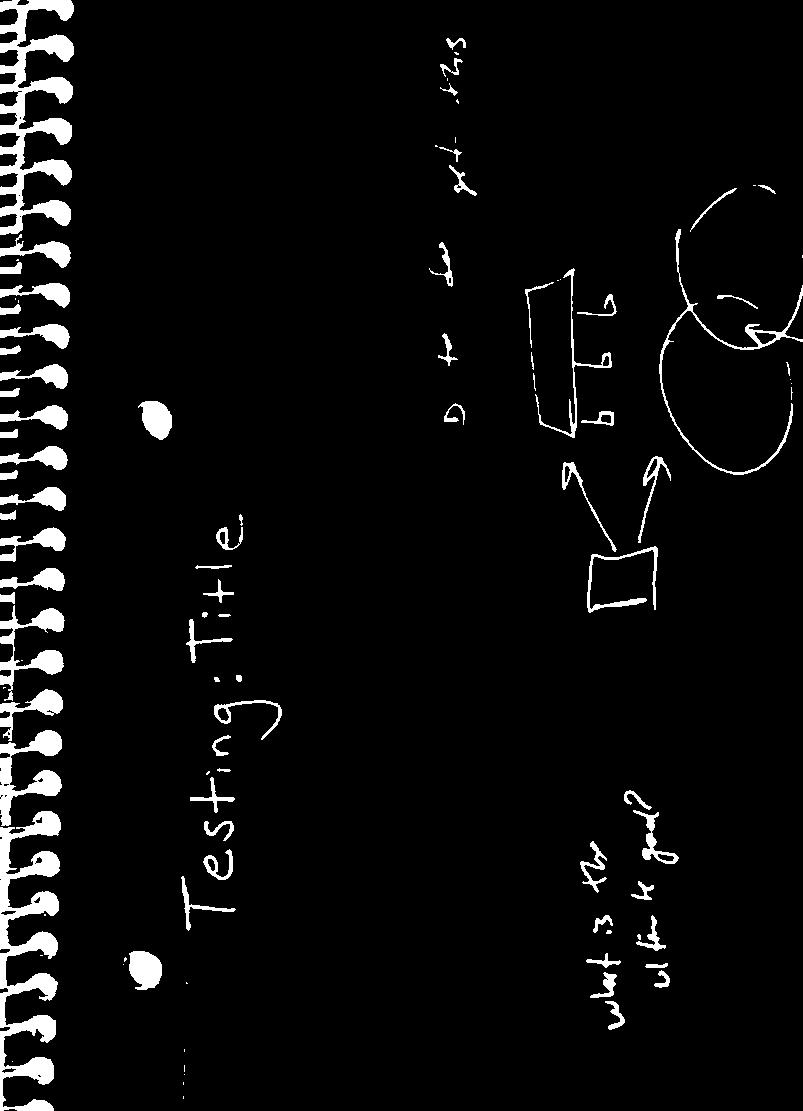 Testing: Title
D to do get this
what is the
ultimate good?
b b b